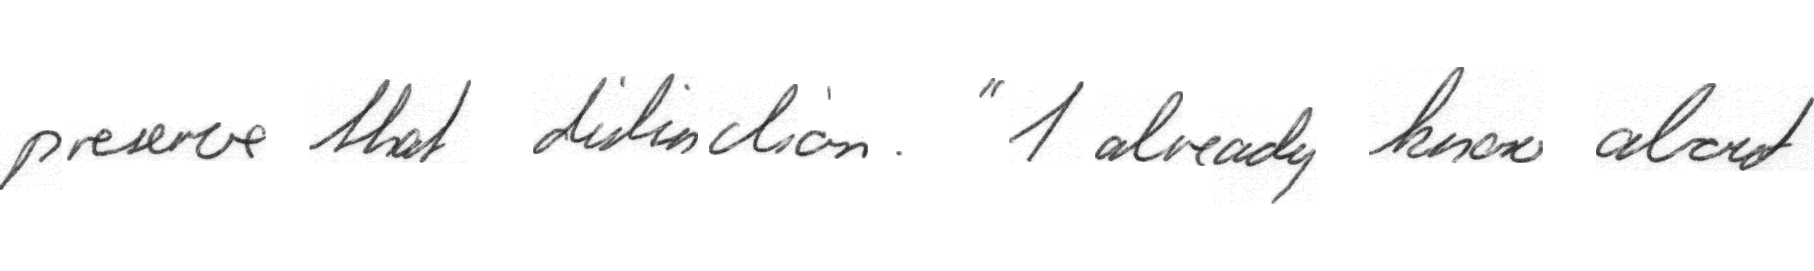 preserve that distinction. "I already know about